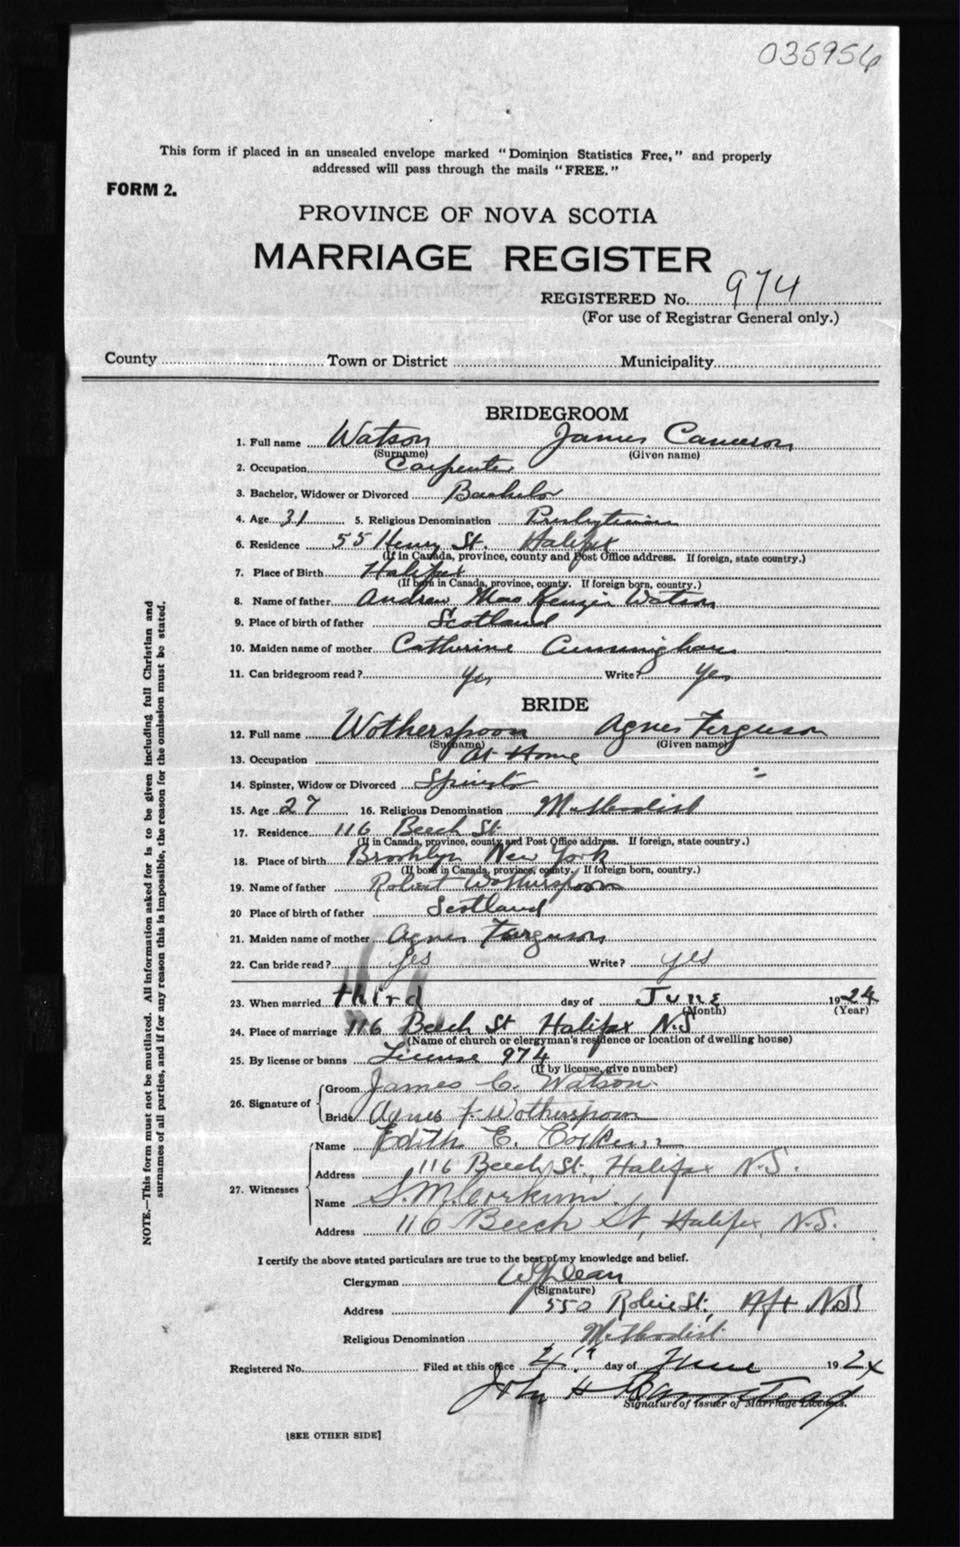 035956
This form if placed in an unsealed envelope marked "Dominion Statistics Free," and properly
addressed will pass through the mails "FREE."
FORM 2.
PROVINCE OF NOVA SCOTIA
MARRIAGE REGISTER
REGISTERED No. 974
(For use of Registrar General only.)
County Town or District Municipality
BRIDEGROOM
1. Full name Watson James Cameron
(Surname) (Given name)
2. Occupation Carpenter
3. Bachelor, Widower or Divorced Bachelor
4. Age 31 5. Religious Denomination Presbyterian
6. Residence 55 Henry St. Halifax
(If in Canada, province, county and Post Office address. If foreign, state country.)
7. Place of Birth Halifax
(If born in Canada, province, county. If foreign born, country.)
8. Name of father Andrew MacKenzie Watson
9. Place of birth of father Scotland
10. Maiden name of mother Catherine Cunningham
11. Can bridegroom read? Yes Write? Yes
BRIDE
12. Full name Wotherspoon Agnes Ferguson
(Surname) (Given name)
13. Occupation At Home
14. Spinster, Widow or Divorced Spinster
15. Age 27 16. Religious Denomination Methodist
17. Residence 116 Beech St.
(If in Canada, province, county and Post Office address. If foreign, state country.)
18. Place of birth Brooklyn New York
(If born in Canada, province, county. If foreign born, country.)
19. Name of father Robert Wotherspoon
20 Place of birth of father Scotland
21. Maiden name of mother Agnes Ferguson
22. Can bride read? Yes Write? yes
23. When married third day of June 1924
(Month) (Year)
24. Place of marriage 116 Beech St Halifax N.S
(Name of church or clergyman's residence or location of dwelling house)
25. By license or banns License 974
(If by license, give number)
26. Signature of
Groom James C. Watson
Bride Agnes F. Wotherspoon
27. Witnesses
Name Edith E. Corkum
Address 116 Beech St., Halifax N.S.
Name S. M. Corkum.
Address 116 Beech St, Halifax, N.S.
I certify the above stated particulars are true to the best of my knowledge and belief.
Clergyman Dean
(Signature)
Address 550 Robie St., Hfx N.S
Religious Denomination Methodist
Registered No. Filed at this office 4th day of June 1924
John H Barnstead
Signature of Issuer of Marriage Licenses.
[SEE OTHER SIDE]
NOTE.—This form must not be mutilated. All information asked for is to be given including full Christian and
surnames of all parties, and if for any reason this is impossible, the reason for the omission must be stated.